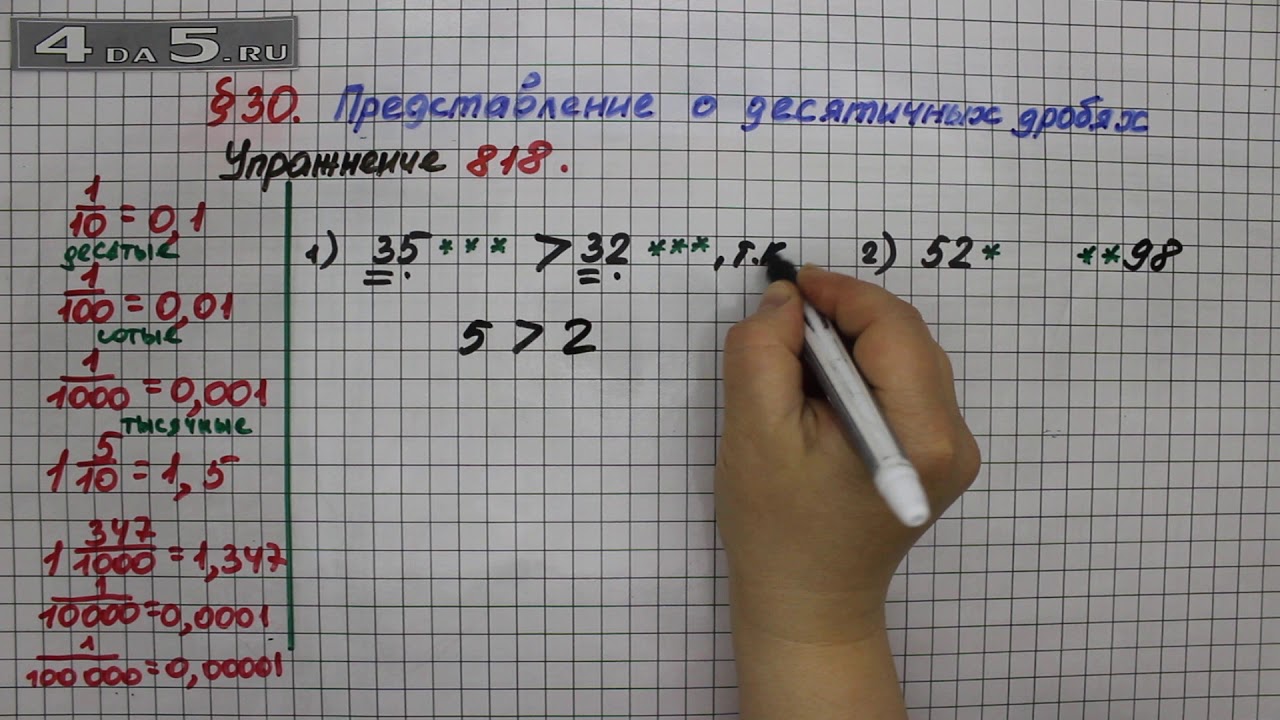 4DA5.RU
§30. Представление о десятичных дробях
Упражнение 818.
1/10 = 0,1
десятые
1/100 = 0,01
сотые
1/1000 = 0,001
тысячные
1 5/10 = 1,5
1 347/1000 = 1,347
1/10000 = 0,0001
1/100000 = 0,00001
1) 35*** > 32***, т.к
5 > 2
2) 52* **98